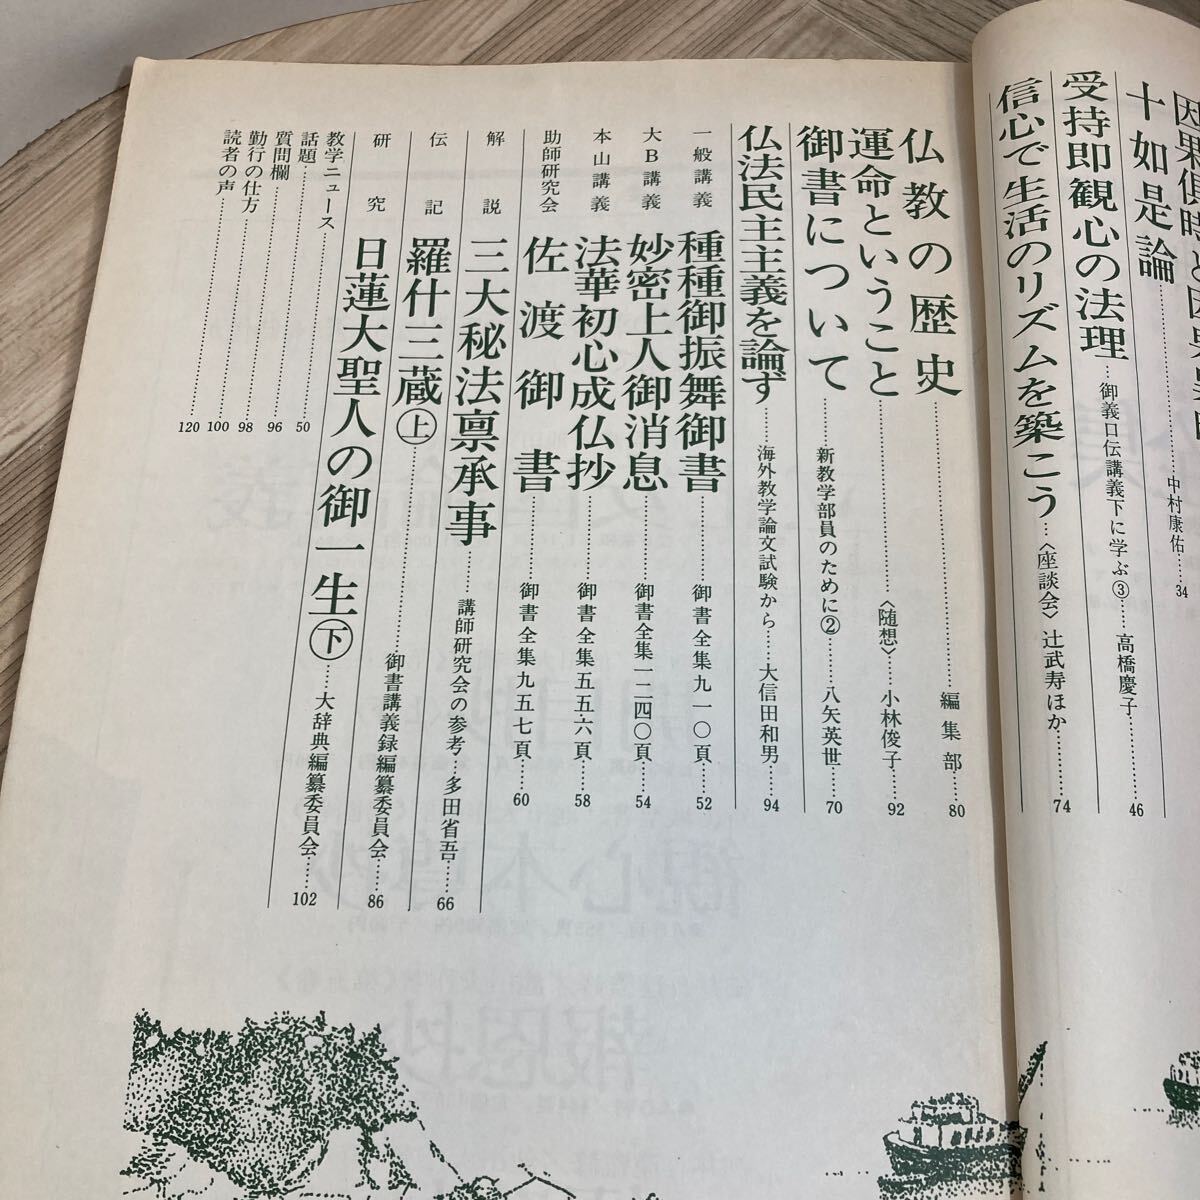 十如是論……中村康佑……34
受持即観心の法理…御義口伝講義下に学ぶ③……高橋慶子……46
信心で生活のリズムを築こう…〈座談会〉辻武寿ほか……74
仏教の歴史……編集部……80
運命ということ……〈随想〉…小林俊子……92
御書について……新教学部員のために②……八矢英世……70
仏法民主主義を論ず……海外教学論文試験から……大信田和男……94
一般講義 種種御振舞御書……御書全集九一〇頁……52
大B講義 妙密上人御消息……御書全集一二四〇頁……54
本山講義 法華初心成仏抄……御書全集五五六頁……58
助師研究会 佐渡御書……御書全集九五七頁……60
解説 三大秘法禀承事……講師研究会の参考…多田省吾……66
伝記 羅什三蔵㊤……御書講義録編纂委員会……86
研究 日蓮大聖人の御一生㊦……大辞典編纂委員会……102
教学ニュース……50
話題……96
質問欄……98
勤行の仕方……100
読者の声……120